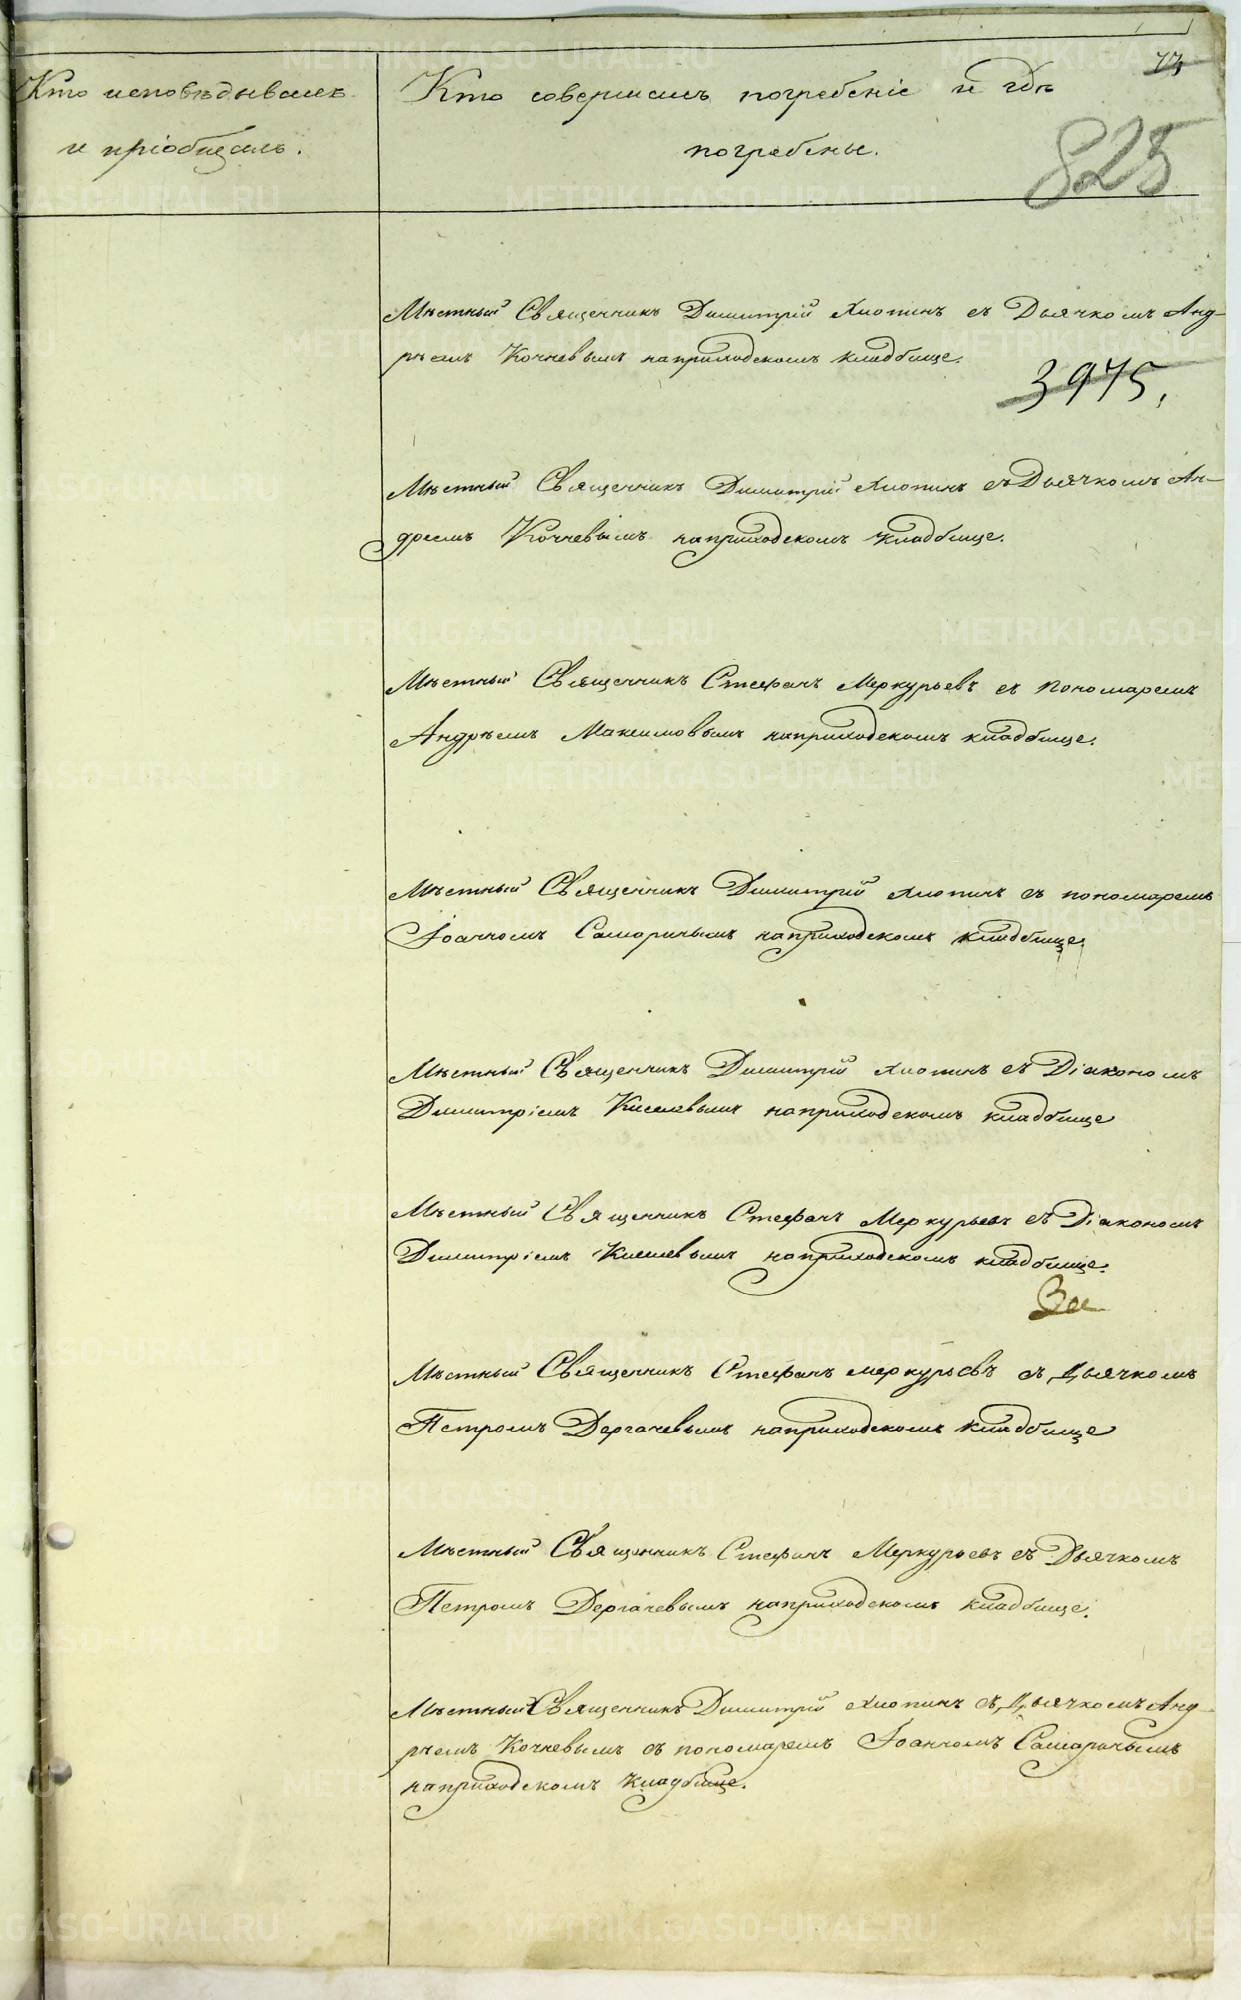 73
Кто исповѣдывалъ
и пріобщалъ.
Кто совершалъ погребеніе и гдѣ
погребены.
825
Мѣстный Священникъ Димитрій Хлопинъ съ Дьячкомъ Анд-
рѣемъ Кочневымъ на приходскомъ кладбище.
3975.
Мѣстный Священникъ Димитрій Хлопинъ съ Дьячкомъ Ан-
дреемъ Кочневымъ на приходскомъ кладбище.
Мѣстный Священникъ Стефанъ Меркурьевъ съ пономаремъ
Андрѣемъ Максимовымъ на приходскомъ кладбище.
Мѣстный Священникъ Димитрій Хлопинъ съ пономаремъ
Іоанномъ Самаринымъ на приходскомъ кладбище
Мѣстный Священникъ Димитрій Хлопинъ съ Діакономъ
Димитріемъ Киселевымъ на приходскомъ кладбище
Мѣстный Священникъ Стефанъ Меркурьевъ съ Діакономъ
Димитріемъ Киселевымъ на приходскомъ кладбище.
Мѣстный Священникъ Стефанъ Меркурьевъ съ Дьячкомъ
Петромъ Дергачевымъ на приходскомъ кладбище
Мѣстный Священникъ Стефанъ Меркурьевъ съ Дьячкомъ
Петромъ Дергачевымъ на приходскомъ кладбище.
Мѣстный Священникъ Димитрій Хлопинъ съ Дьячкомъ Анд-
рѣемъ Кочневымъ съ пономаремъ Іоанномъ Самаринымъ
на приходскомъ кладбище.
METRIKI.GASO-URAL.RU